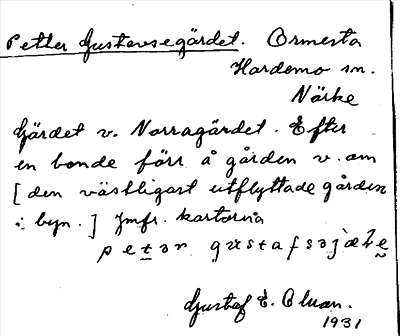 Petter Gustavsegärdet. Ormesta
Hardemo sn.
Närke
Gärdet v. Norragärdet. Efter
en bonde förr å gården v. om
[den västligast utflyttade gården
i byn.] Jmfr. kartorna
Gustaf E.
1931